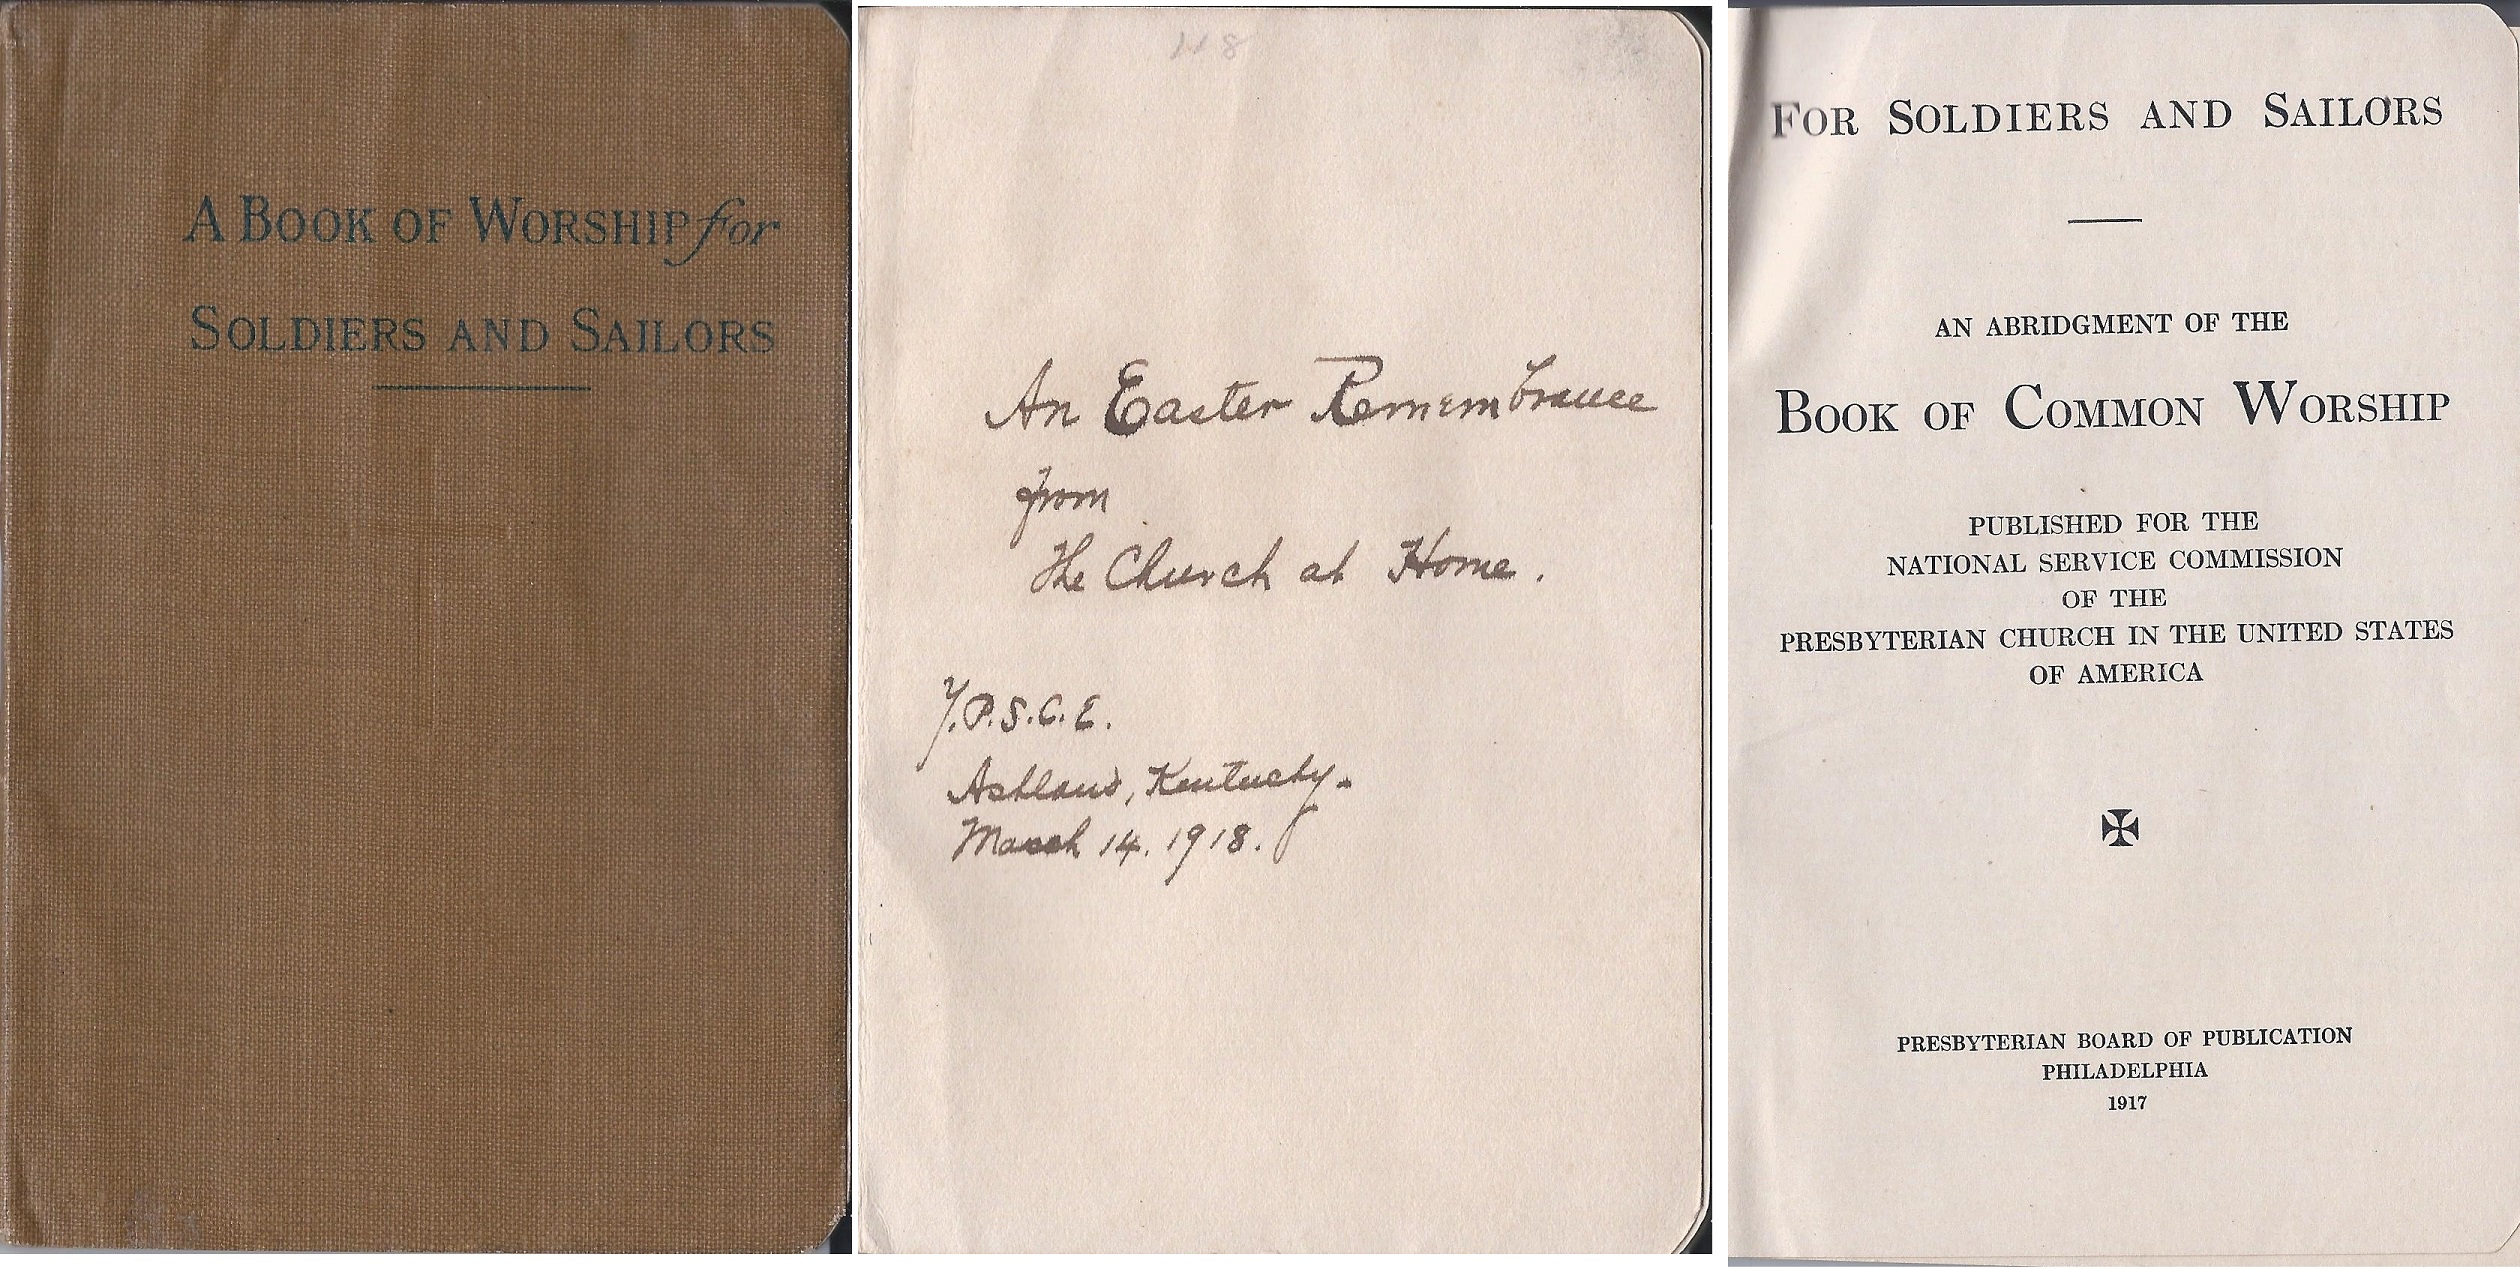 A BOOK OF WORSHIP for
SOLDIERS AND SAILORS
An Easter Remembrance
from
The Church at Home.
Y.P.S.C.E.
Ashland, Kentucky.
March 14. 1918.
FOR SOLDIERS AND SAILORS
AN ABRIDGMENT OF THE
BOOK OF COMMON WORSHIP
PUBLISHED FOR THE
NATIONAL SERVICE COMMISSION
OF THE
PRESBYTERIAN CHURCH IN THE UNITED STATES
OF AMERICA
PRESBYTERIAN BOARD OF PUBLICATION
PHILADELPHIA
1917